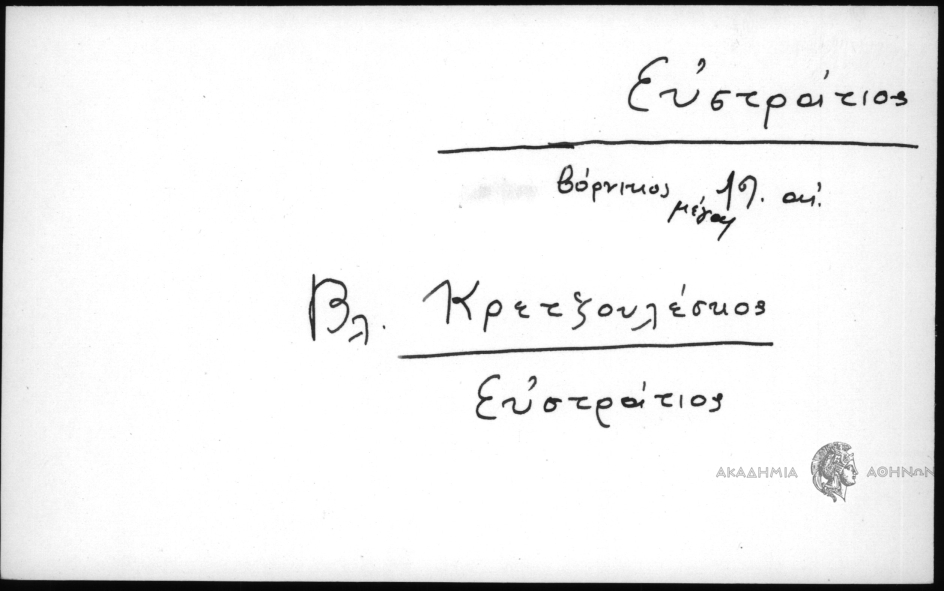 Εὐστράτιος
βόρνικος μέγας 19. αἰ.
Βλ. Κρετζουλέσκος
Εὐστράτιος
ΑΚΑΔΗΜΙΑ ΑΘΗΝΩΝ